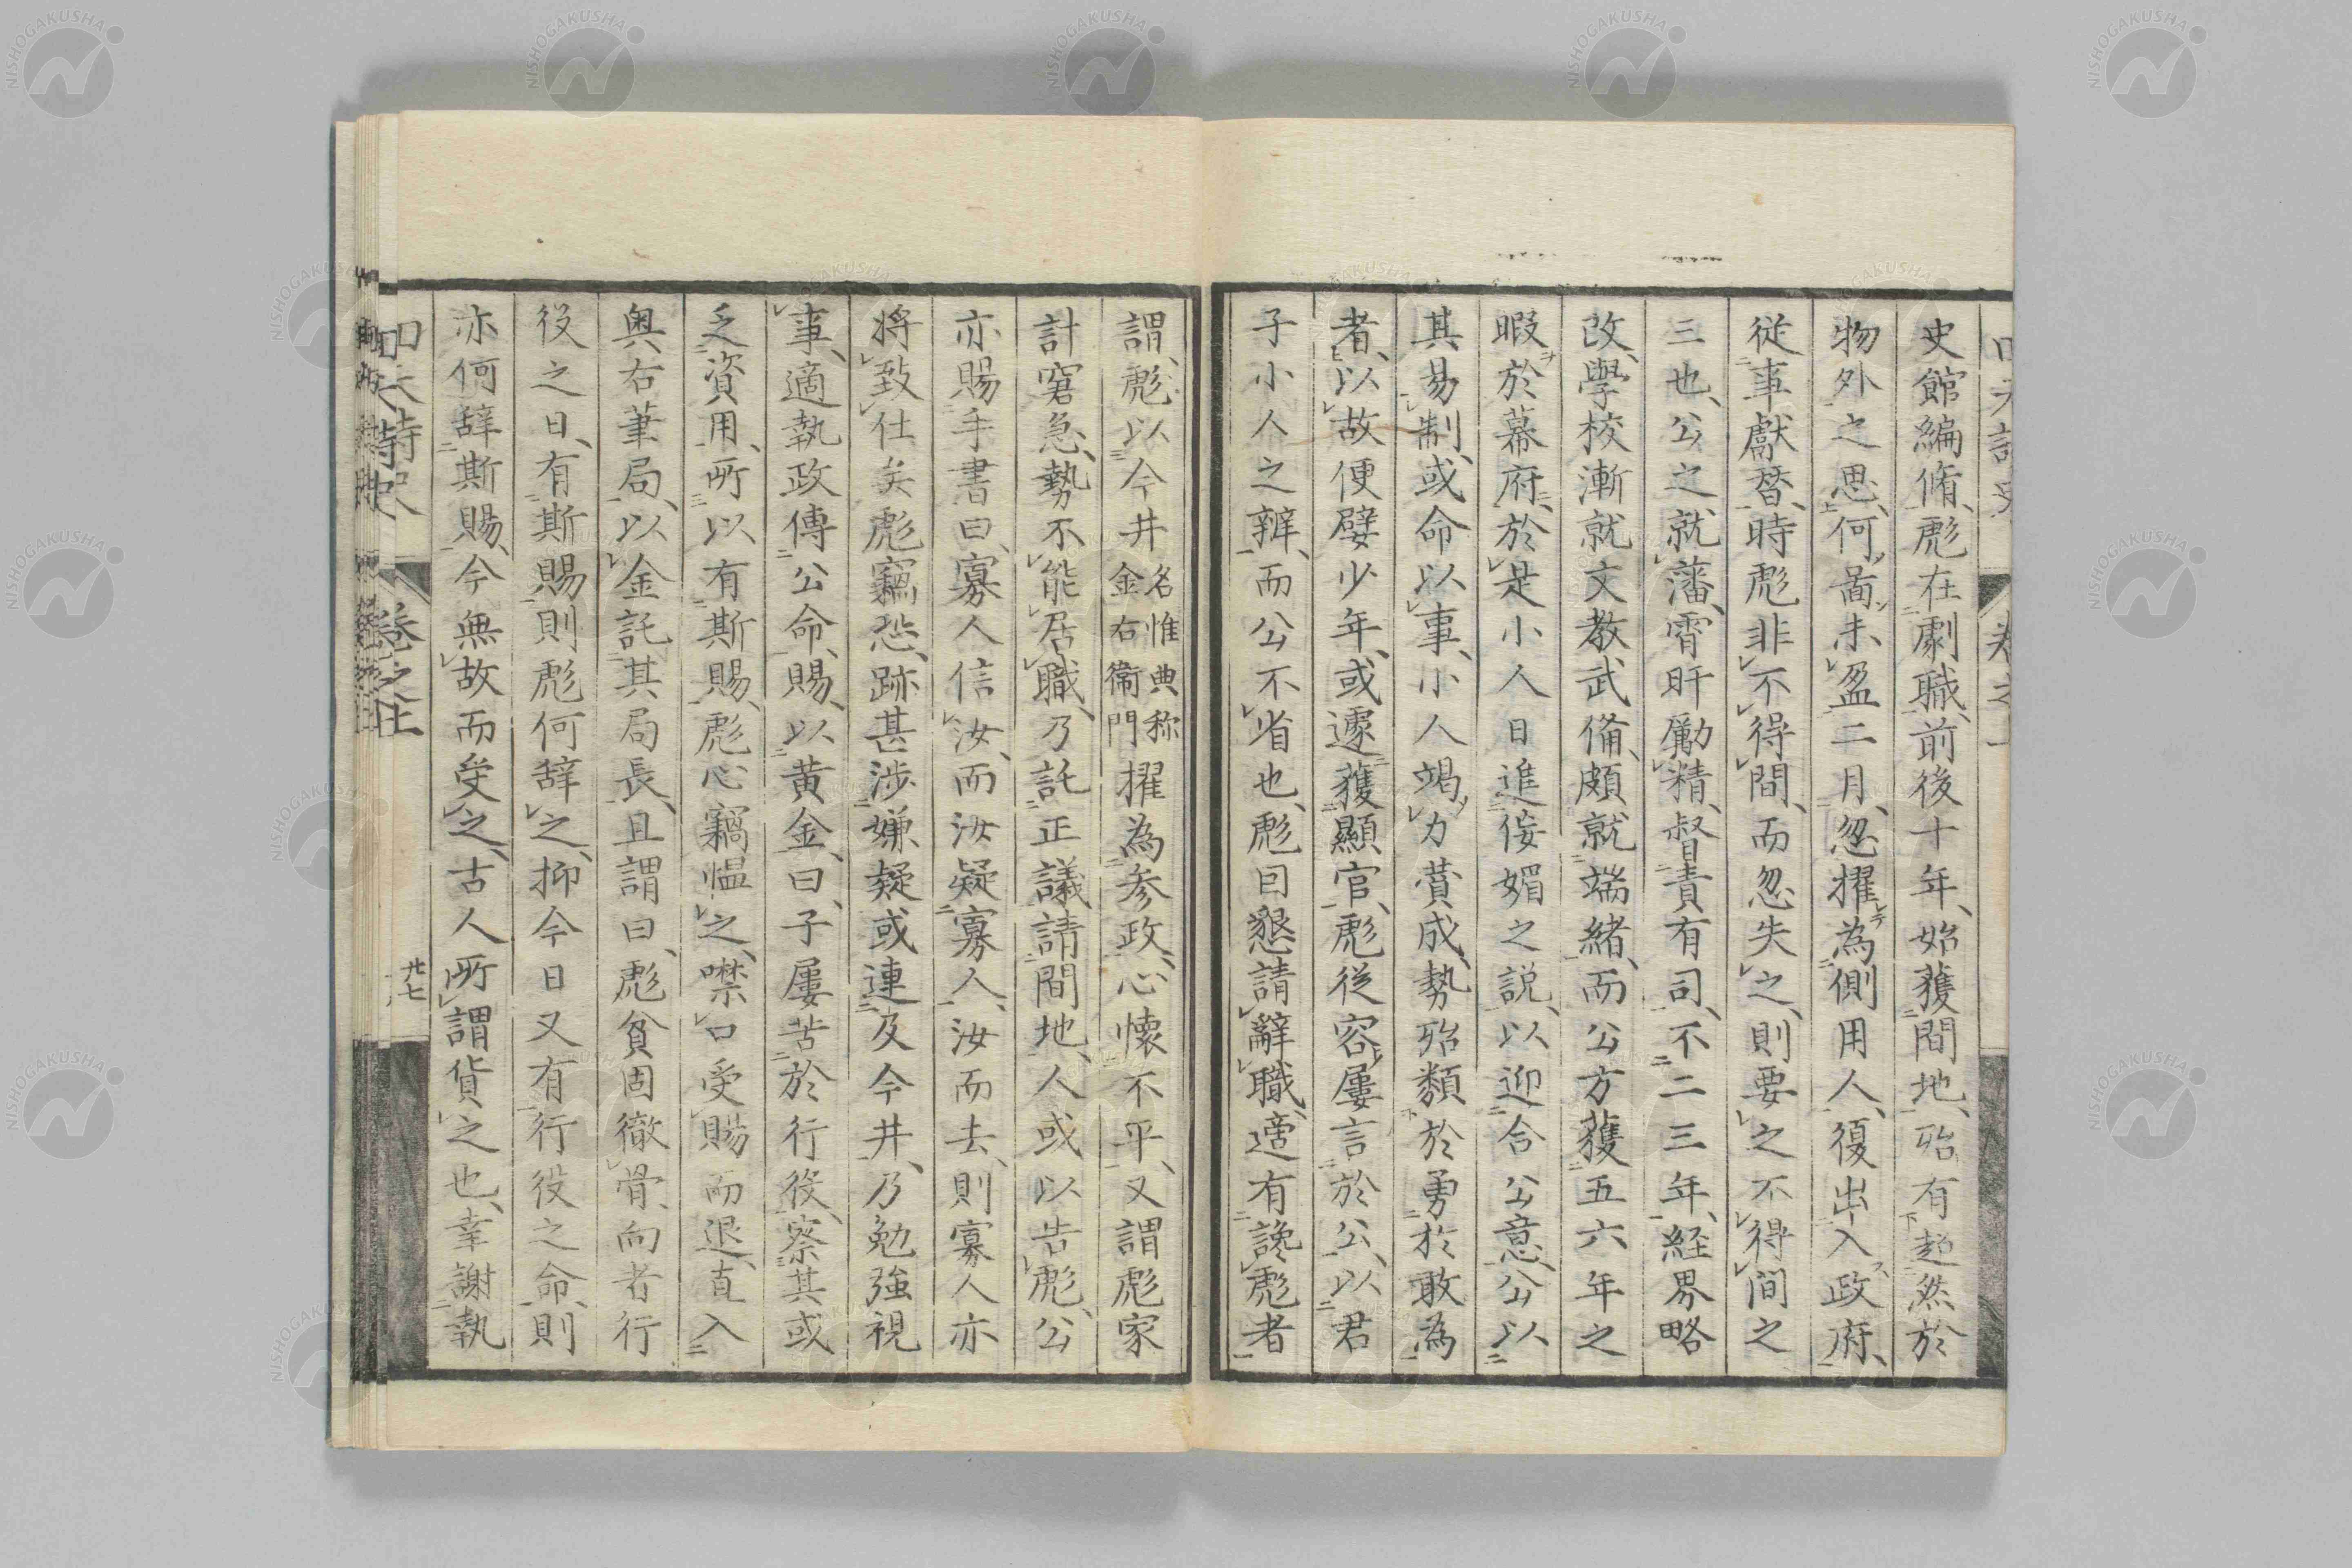 史館編脩、彪在劇職、前後十年、始獲間地、殆有超然於
物外之思、何啚未盈二月、忽擢為側用人、復出入政府、
従事獻替、時彪非不得間、而忽失之、則要之不得間之
三也、公之就藩、宵旰勵精、督責有司、不二三年、経界略
改、學校漸就文教武備、頗就端緒、而公方獲五六年之
暇於幕府、於是小人日進侫媚之説、以迎合公意、公以
其易制、或命以事、小人竭力賛成、勢殆類於勇於敢為
者、以故便嬖少年、或遽獲顯官、彪従容屢言於公、以君
子小人之辨、而公不省也、彪囙懇請辭職、適有讒彪者
謂、彪以今井名惟典称金右衞門擢為参政、心懐不平、又謂彪家
計窘急、勢不能居職、乃託正議請間地、人或以告彪、公
亦賜手書曰、寡人信汝、而汝疑寡人、汝而去、則寡人亦
将致仕矣、彪竊恐、跡甚渉嫌疑、或連及今井、乃勉強視
事、適執政傳公命、賜以黄金、曰、子屢苦於行役、察其或
乏資用、所以有斯賜、彪心竊慍之、噤口受賜而退、直入
奥右筆局、以金託其局長、且謂曰、彪貧固徹骨、向者行
役之日、有斯賜則彪何辞之、抑今日又有行役之命、則
亦何辞斯賜、今無故而受之、古人所謂貨之也、幸謝執
回天詩史
巻之上
廿七